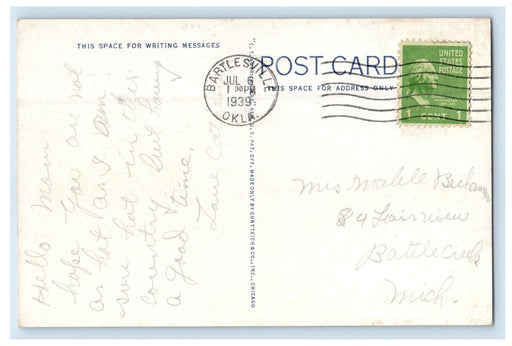 THIS SPACE FOR WRITING MESSAGES
Hello Mom
hope you are not
as hot as I am
sure hot in this
country but having
a good time.
Love
POST CARD
THIS SPACE FOR ADDRESS ONLY
BARTLESVILLE
JUL 6
1 30PM
1939
OKLA.
UNITED
STATES
POSTAGE
1 CENT 1
REG. U.S. PAT. OFF. MADE ONLY BY CURT TEICH & CO., INC., CHICAGO
Mrs
89 Fairview
Battle Creek
Mich.